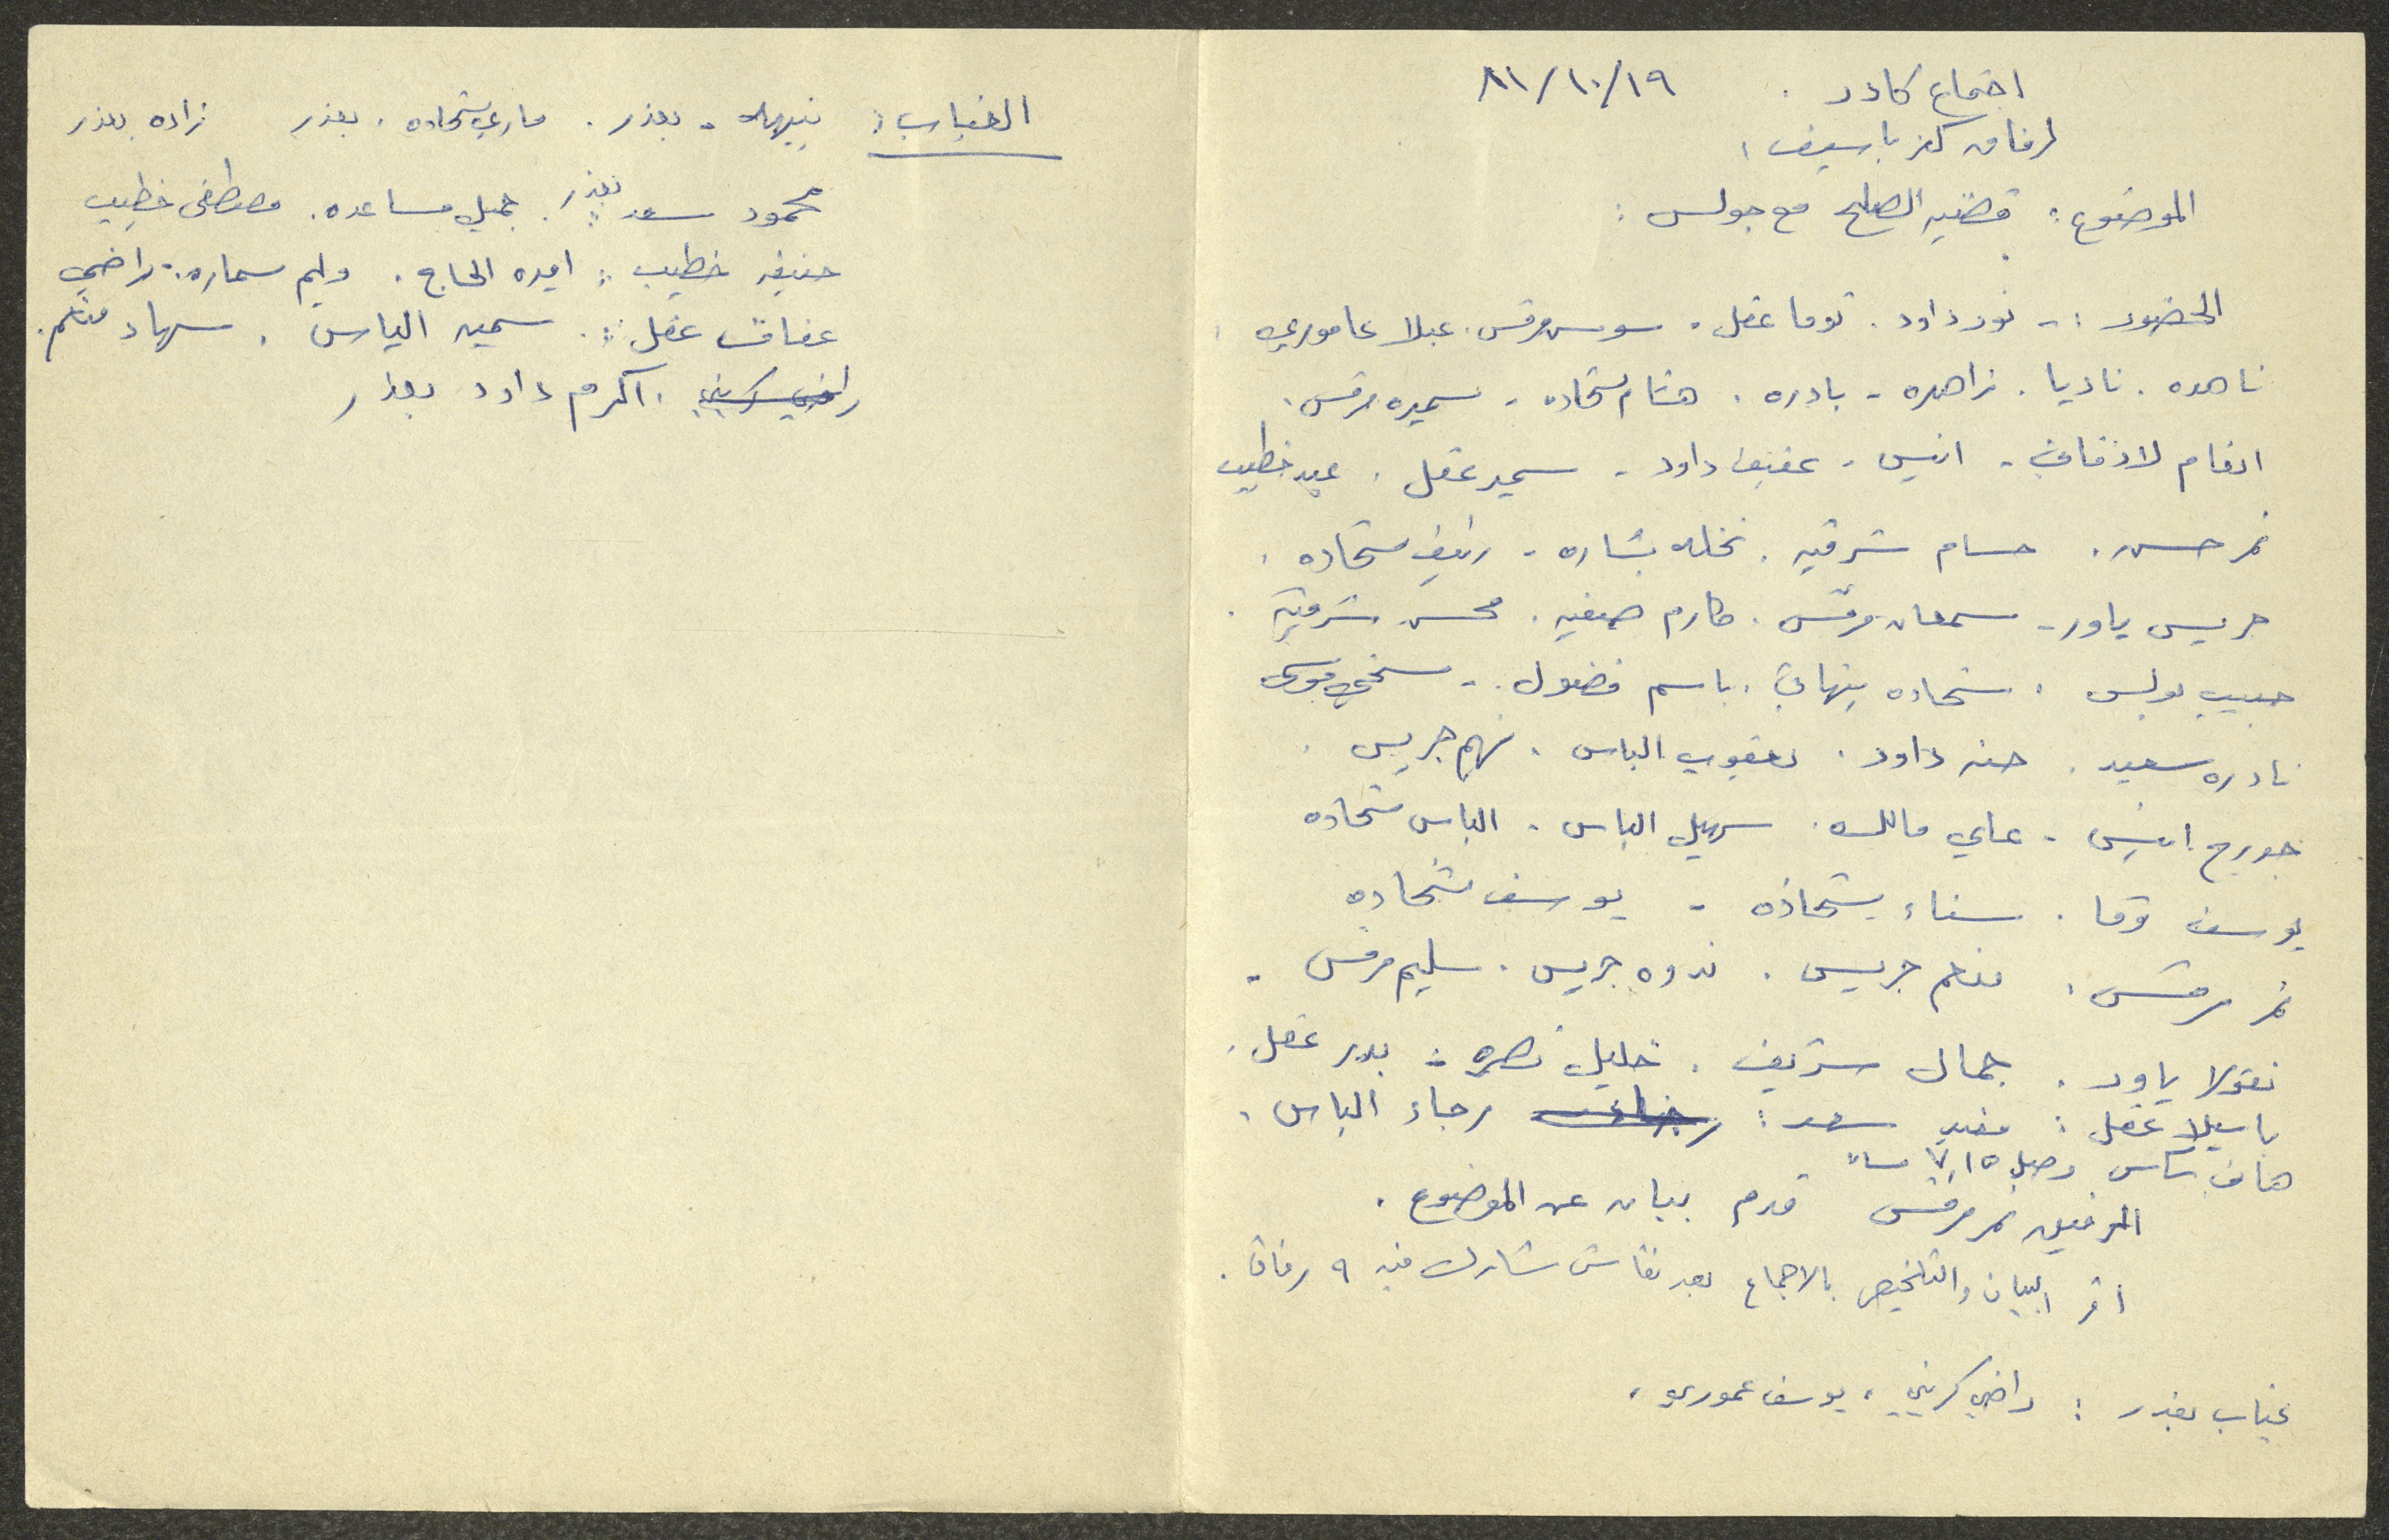 اجتماع كادر . ٨١/١٠/١٩
لرفاق كفر ياسيف :
الموضوع : قضية الصلح مع جولس :
الحضور :- نور داود . توما عقل . سوسن مرقس . عبلا عاموري .
ناهده . ناديا . زاهره - بادره . هشام شحاده - سميره مرقس .
انعام - انيس - عفيف داود - سمير عقل . عيد خطيب
نمر حسن . حسام شرقيه . نخله بشاره - رئيف شحاده .
جريس ياور - سمعان مرقس . مكارم صفيه . محسن شرقيه .
حبيب بولس . شحاده . باسم فضول . - موسى
نادره سعيد . حنه داود . يعقوب الياس . فهيم جريس .
جورج انيس - علي مالك . سهيل الياس . الياس شحاده
يوسف توما . سناء شحاده - يوسف شحاده
نمر مرقس . منعم جريس . ندوه جريس . سليم مرقس -
نقولا ياور . جمال شريف . خليل نصره - بدر عقل .
باسيلا عقل : مفيد سعد : رجاء الياس .
وصل ٧,١٥ مساء
الرفيق نمر مرقس قدم بيان عن الموضوع .
اقر البيان والتلخيص بالاجماع بعد نقاش شارك فيه ٩ رفاق .
غياب بعذر : راضي كريني ، يوسف عموري ،
الغياب : نبيهه - بعذر . ماري شحاده . بعذر بعذر
محمود سعد بعذر . جميل مساعده . مصطفى خطيب
حنيفه خطيب : الحاج . وليم سماره . راضي
عفاف عقل : سميه الياس . سهاد منعم .
راضي كريني . اكرم داود بعذر